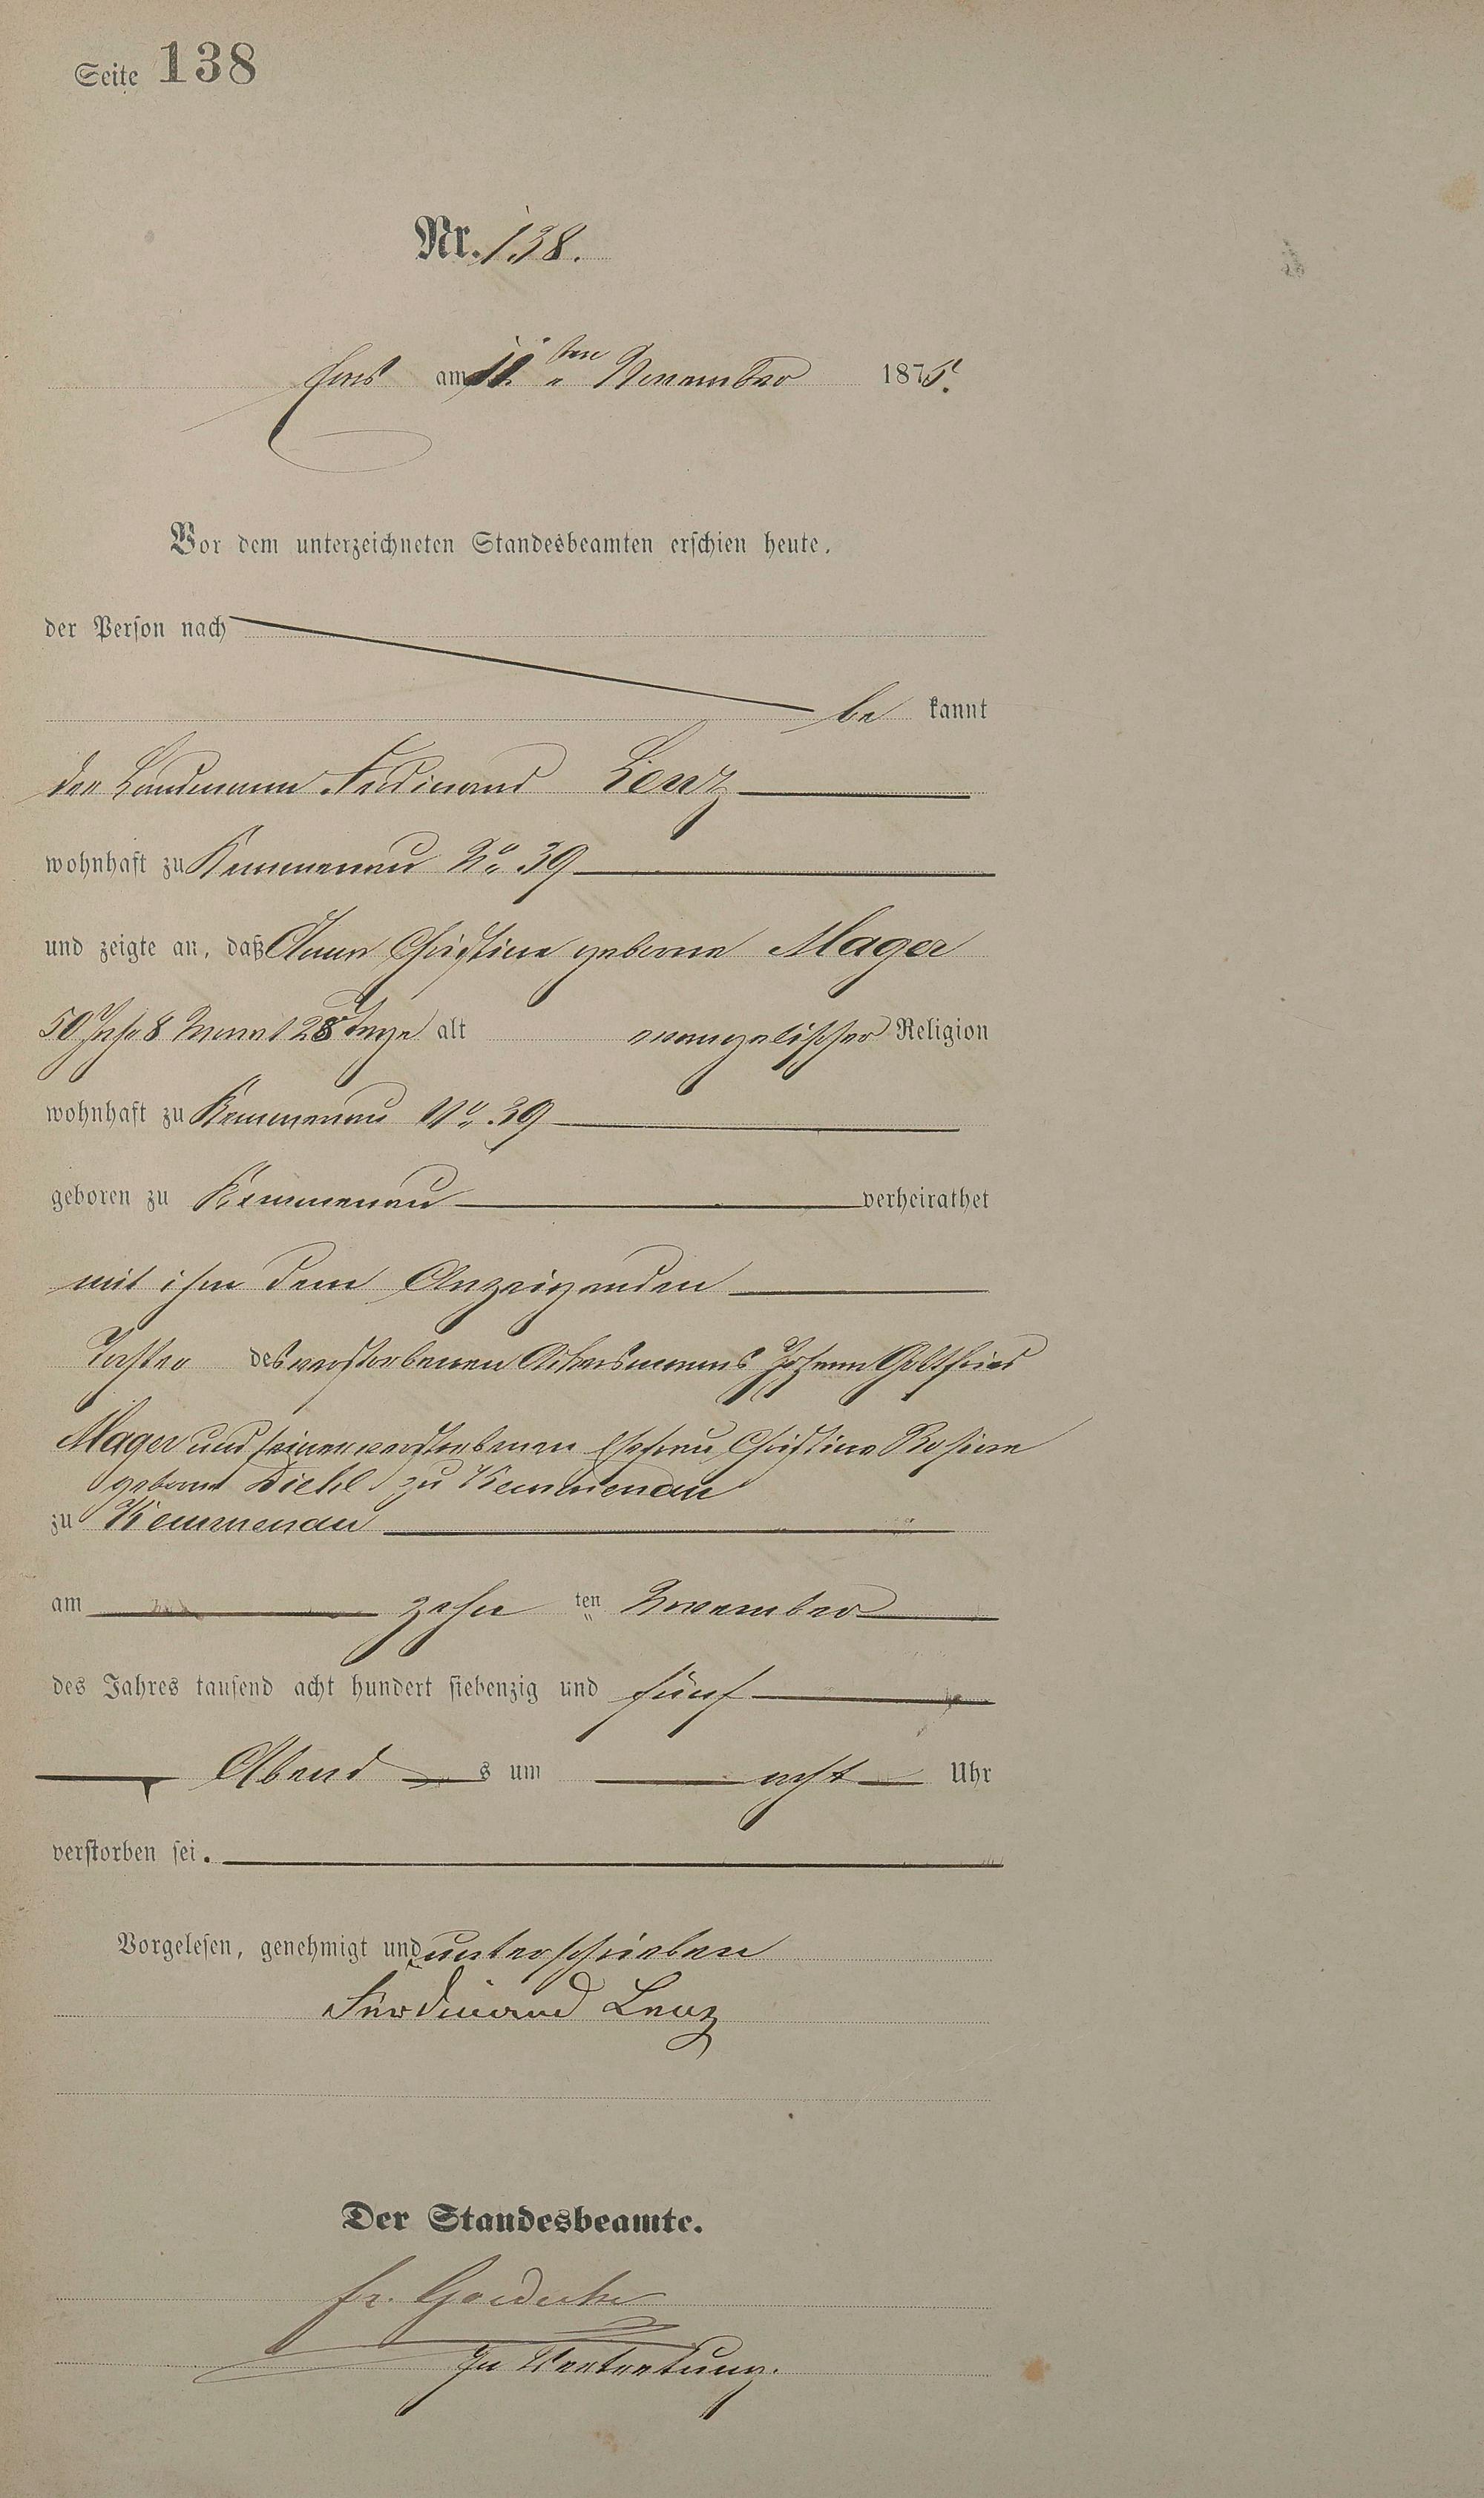 Seite 138
Nr. 138.
Ems am 11ten November 1875.
Vor dem unterzeichneten Standesbeamten erschien heute,
der Person nach
be kannt
der Landmann Ferdinand Lenz
wohnhaft zu Kemmenau No 39
und zeigte an, daß Anna Christine geborne Mager
50 Jahr 8 Monat 28 Tage alt evangelischer Religion
wohnhaft zu Kemmenau No. 39
geboren zu Kemmenau verheirathet
mit ihm dem Anzeigenden
Tochter des verstorbenen Ackersmanns Johann Gottfried
Mager und seiner verstorbenen Ehefrau Christine Rosine
geborne Diehl zu Kemmenau
zu Kemmenau
am zehn ten November
des Jahres tausend acht hundert siebenzig und fünf
Abend s um acht Uhr
verstorben sei.
Vorgelesen, genehmigt und unterschrieben
Ferdinand Lenz
Der Standesbeamte.
Fr.
In Vertretung.